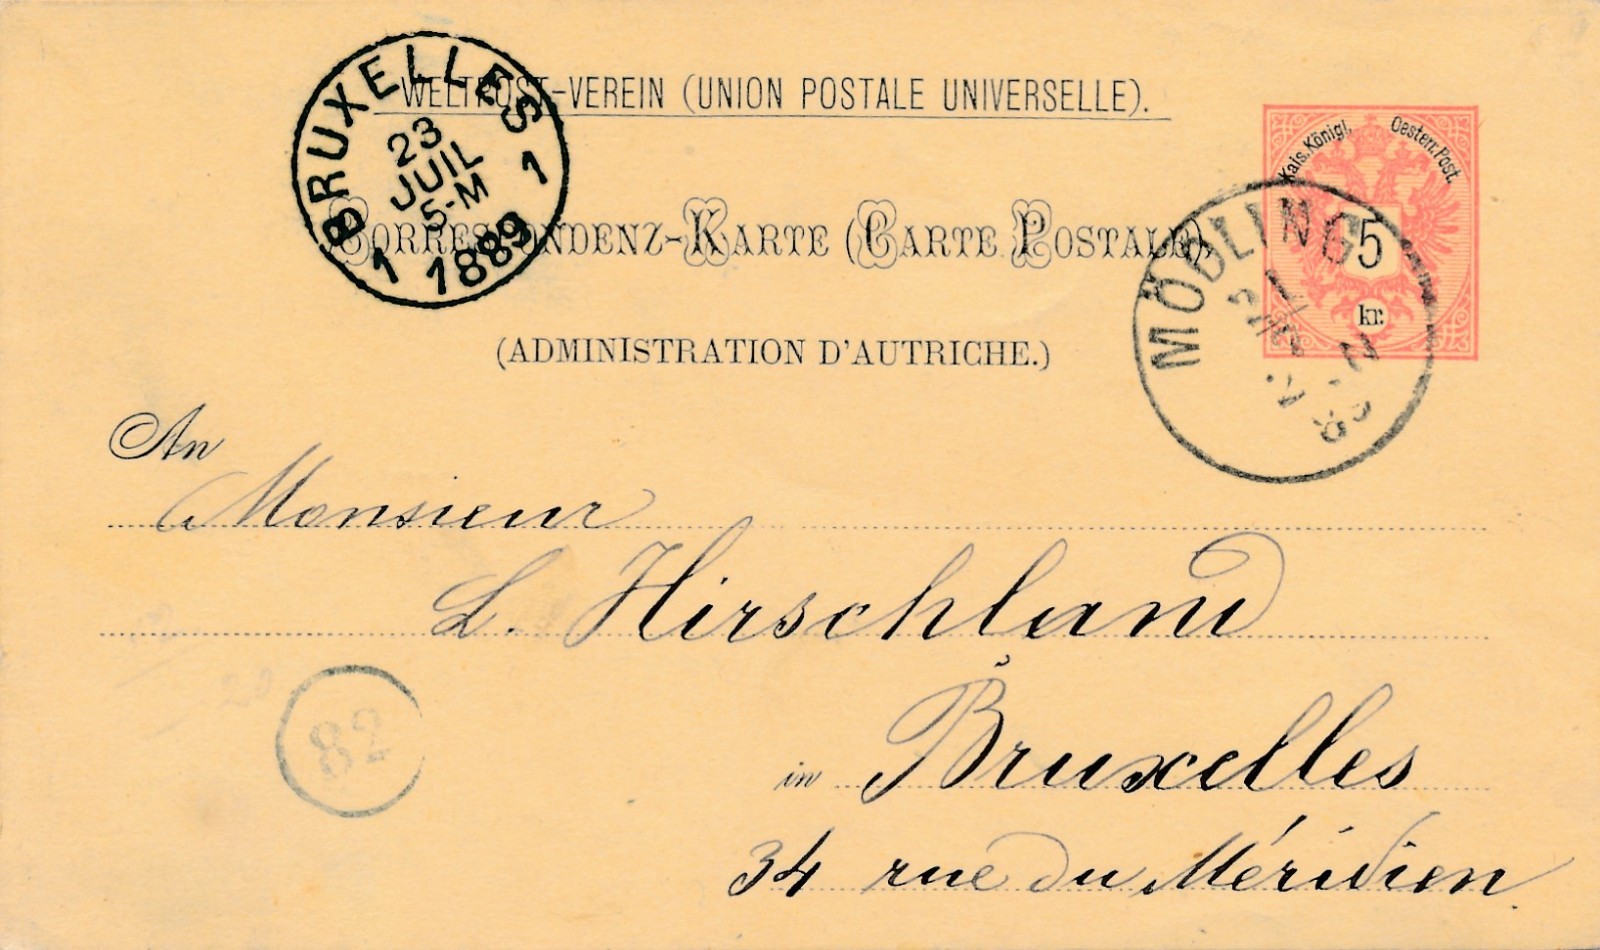 WELTPOST-VEREIN (UNION POSTALE UNIVERSELLE).
BRUXELLES
23
JUIL
5-M
1 1889 1
Kais. Königl. Oesterr. Post.
5
kr.
CORRESPONDENZ-KARTE (CARTE POSTALE),
MÖDLING
(ADMINISTRATION D'AUTRICHE.)
An
Monsieur
L. Hirschland
in Bruxelles
82
34 rue du Méridien